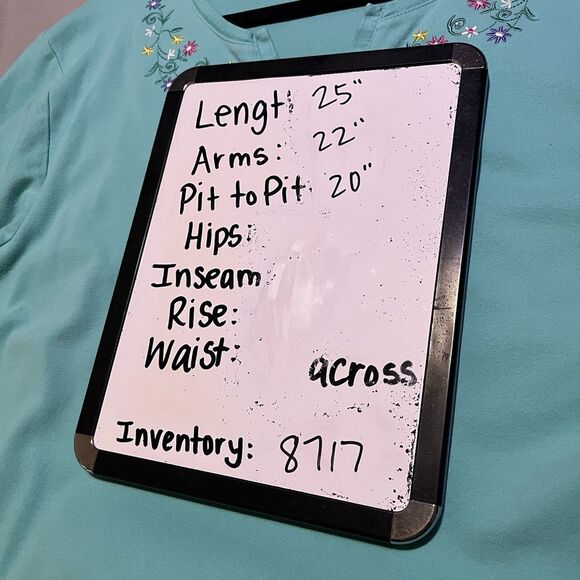 Lengt: 25"
Arms: 22"
Pit to Pit: 20"
Hips:
Inseam
Rise:
Waist:
across
Inventory: 8717